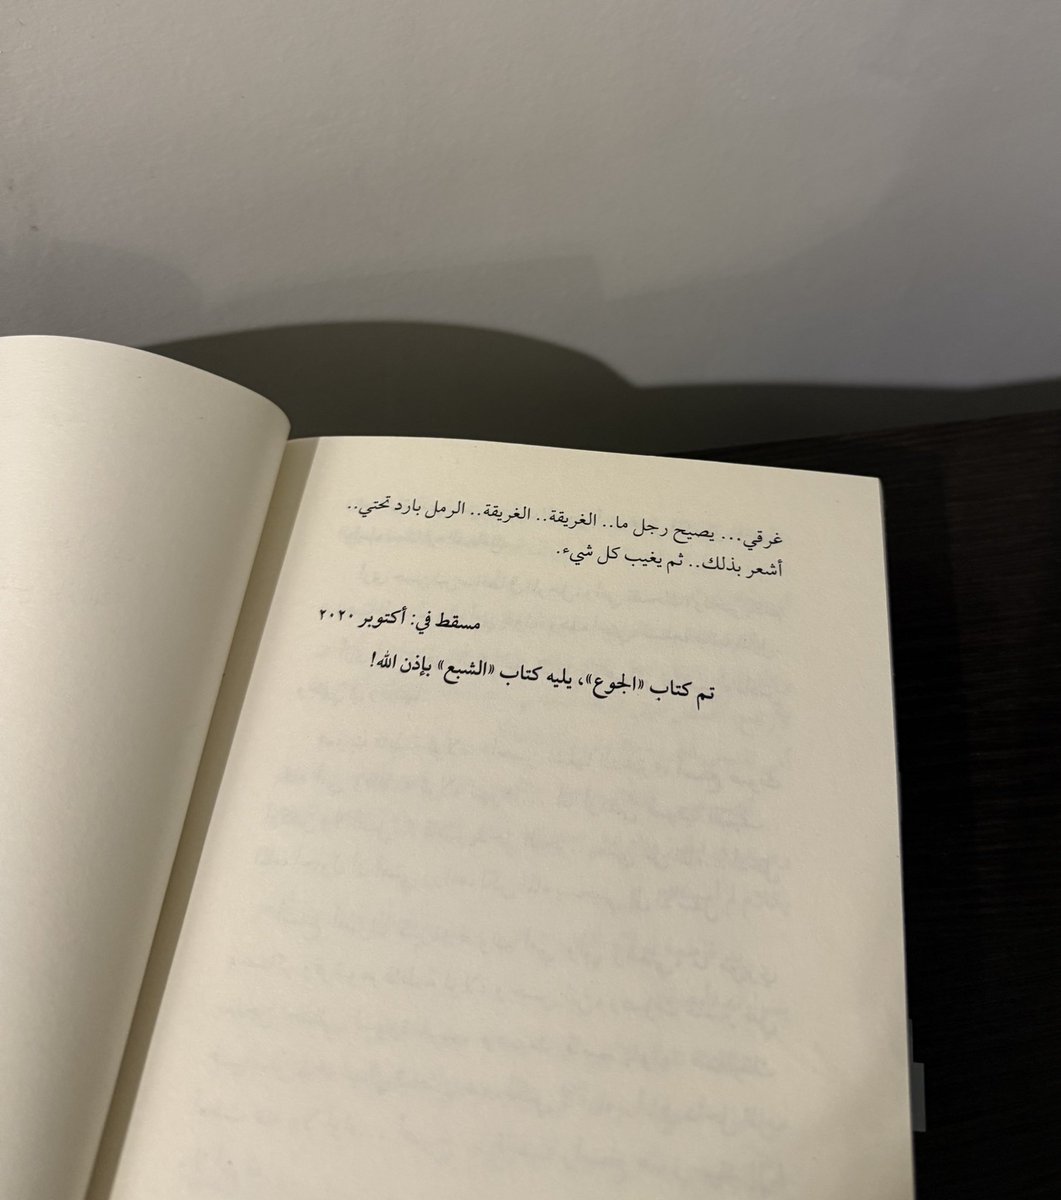 غرقي... يصيح رجل ما.. الغريقة.. الغريقة.. الرمل بارد تحتي..
أشعر بذلك.. ثم يغيب كل شيء.
مسقط في: أكتوبر ٢٠٢٠
تم كتاب «الجوع»، يليه كتاب «الشبع» بإذن الله!